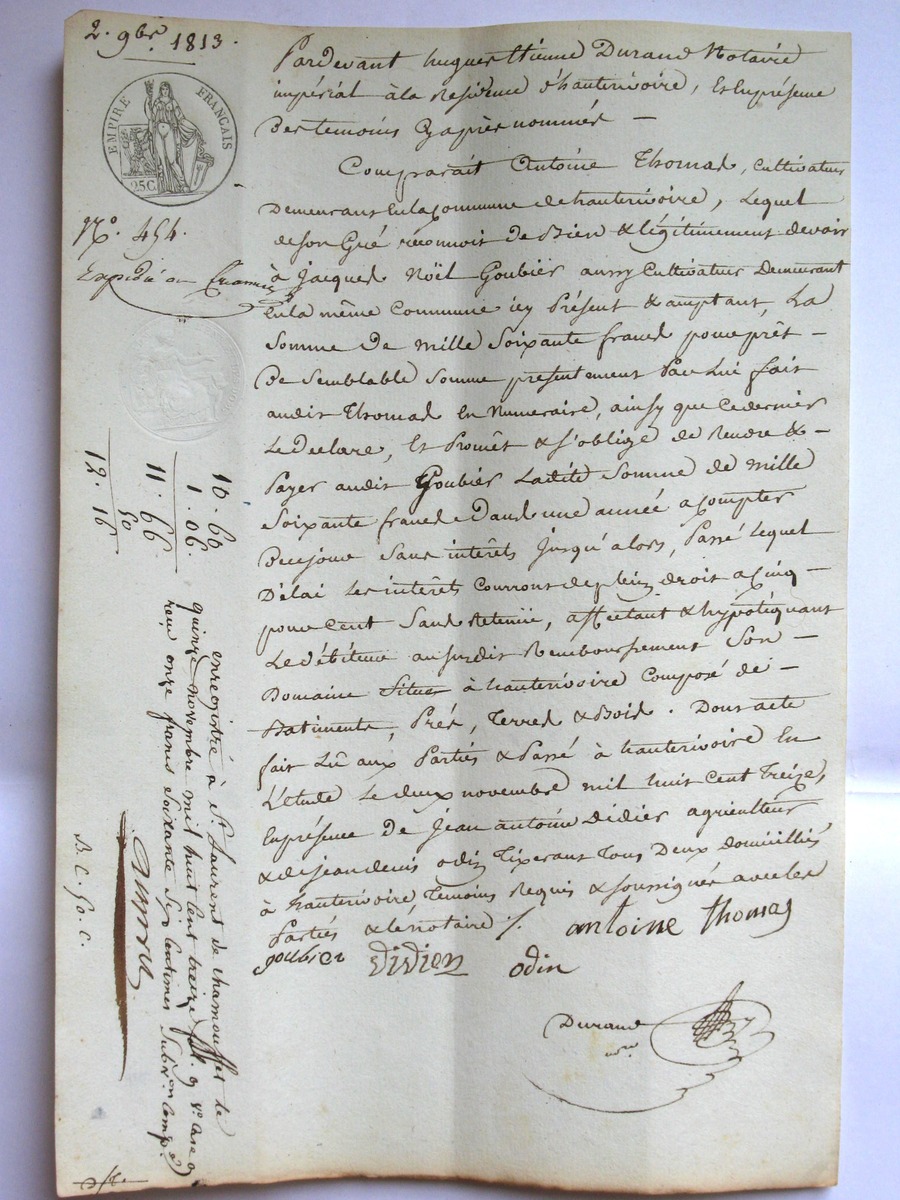 2. 9bre 1813.
EMPIRE FRANÇAIS
25C
N.o 454.
Expédié au
Pardevant hugues Etienne Durand Notaire
impérial à la Residence d'hauterivoire, Et Enprésence
Des temoins Cyaprès nommés —
Comparait Antoine Thomas, Cultivateur
Demeurant En la Commune de hauterivoire, Lequel
de son Gré réconnoit De Bien & légitimement devoir
à Jacques Noël Goubier aussy Cultivateur Demeurant
En la même Commune icy Présent & acceptant, La
Somme De Mille Soixante francs pour prêt —
De Semblable Somme présentement Par Lui fait
audit Thomas En Numeraire, ainsy que Cedernier
Le Déclare, Et Promêt & s'oblige de Rendre & —
Payer audit Goubier Ladite Somme de Mille
Soixante francs Dans une année a Compter
De ce jour Sans intérêts Jusqu'alors, Passé Lequel
Délai Les intérêts Courront de plein droit a Cinq —
pour Cent Sans Retenüe, affectant & hypotéquant
Le débiteur au susdit Remboursement Son —
Domaine Situé à hauterivoire Composé de —
Batiments, Prés, Terres & Bois. Dont acte
fait Lû aux Parties & Passé à hauterivoire En
L'étude Le deux novembre mil huit Cent Treize,
En présence De Jean antoine Didier agriculteur
& de jean denis odin Tixerant Tous Deux domiciliés
à hauterivoire, Temoins Requis & soussignés avec les
Parties & le notaire ./.
antoine thomas
goubier Didier odin
Durand
nre
10. 60
1. 06.
11. 66
50
12. 16
enregistré à St Laurent de chamousset le
quinze novembre mil huit cent treize fol. 9 vo Case 9
reçu onze francs soixante six Centimes Subvon Comp.e
B. C. 50. C.